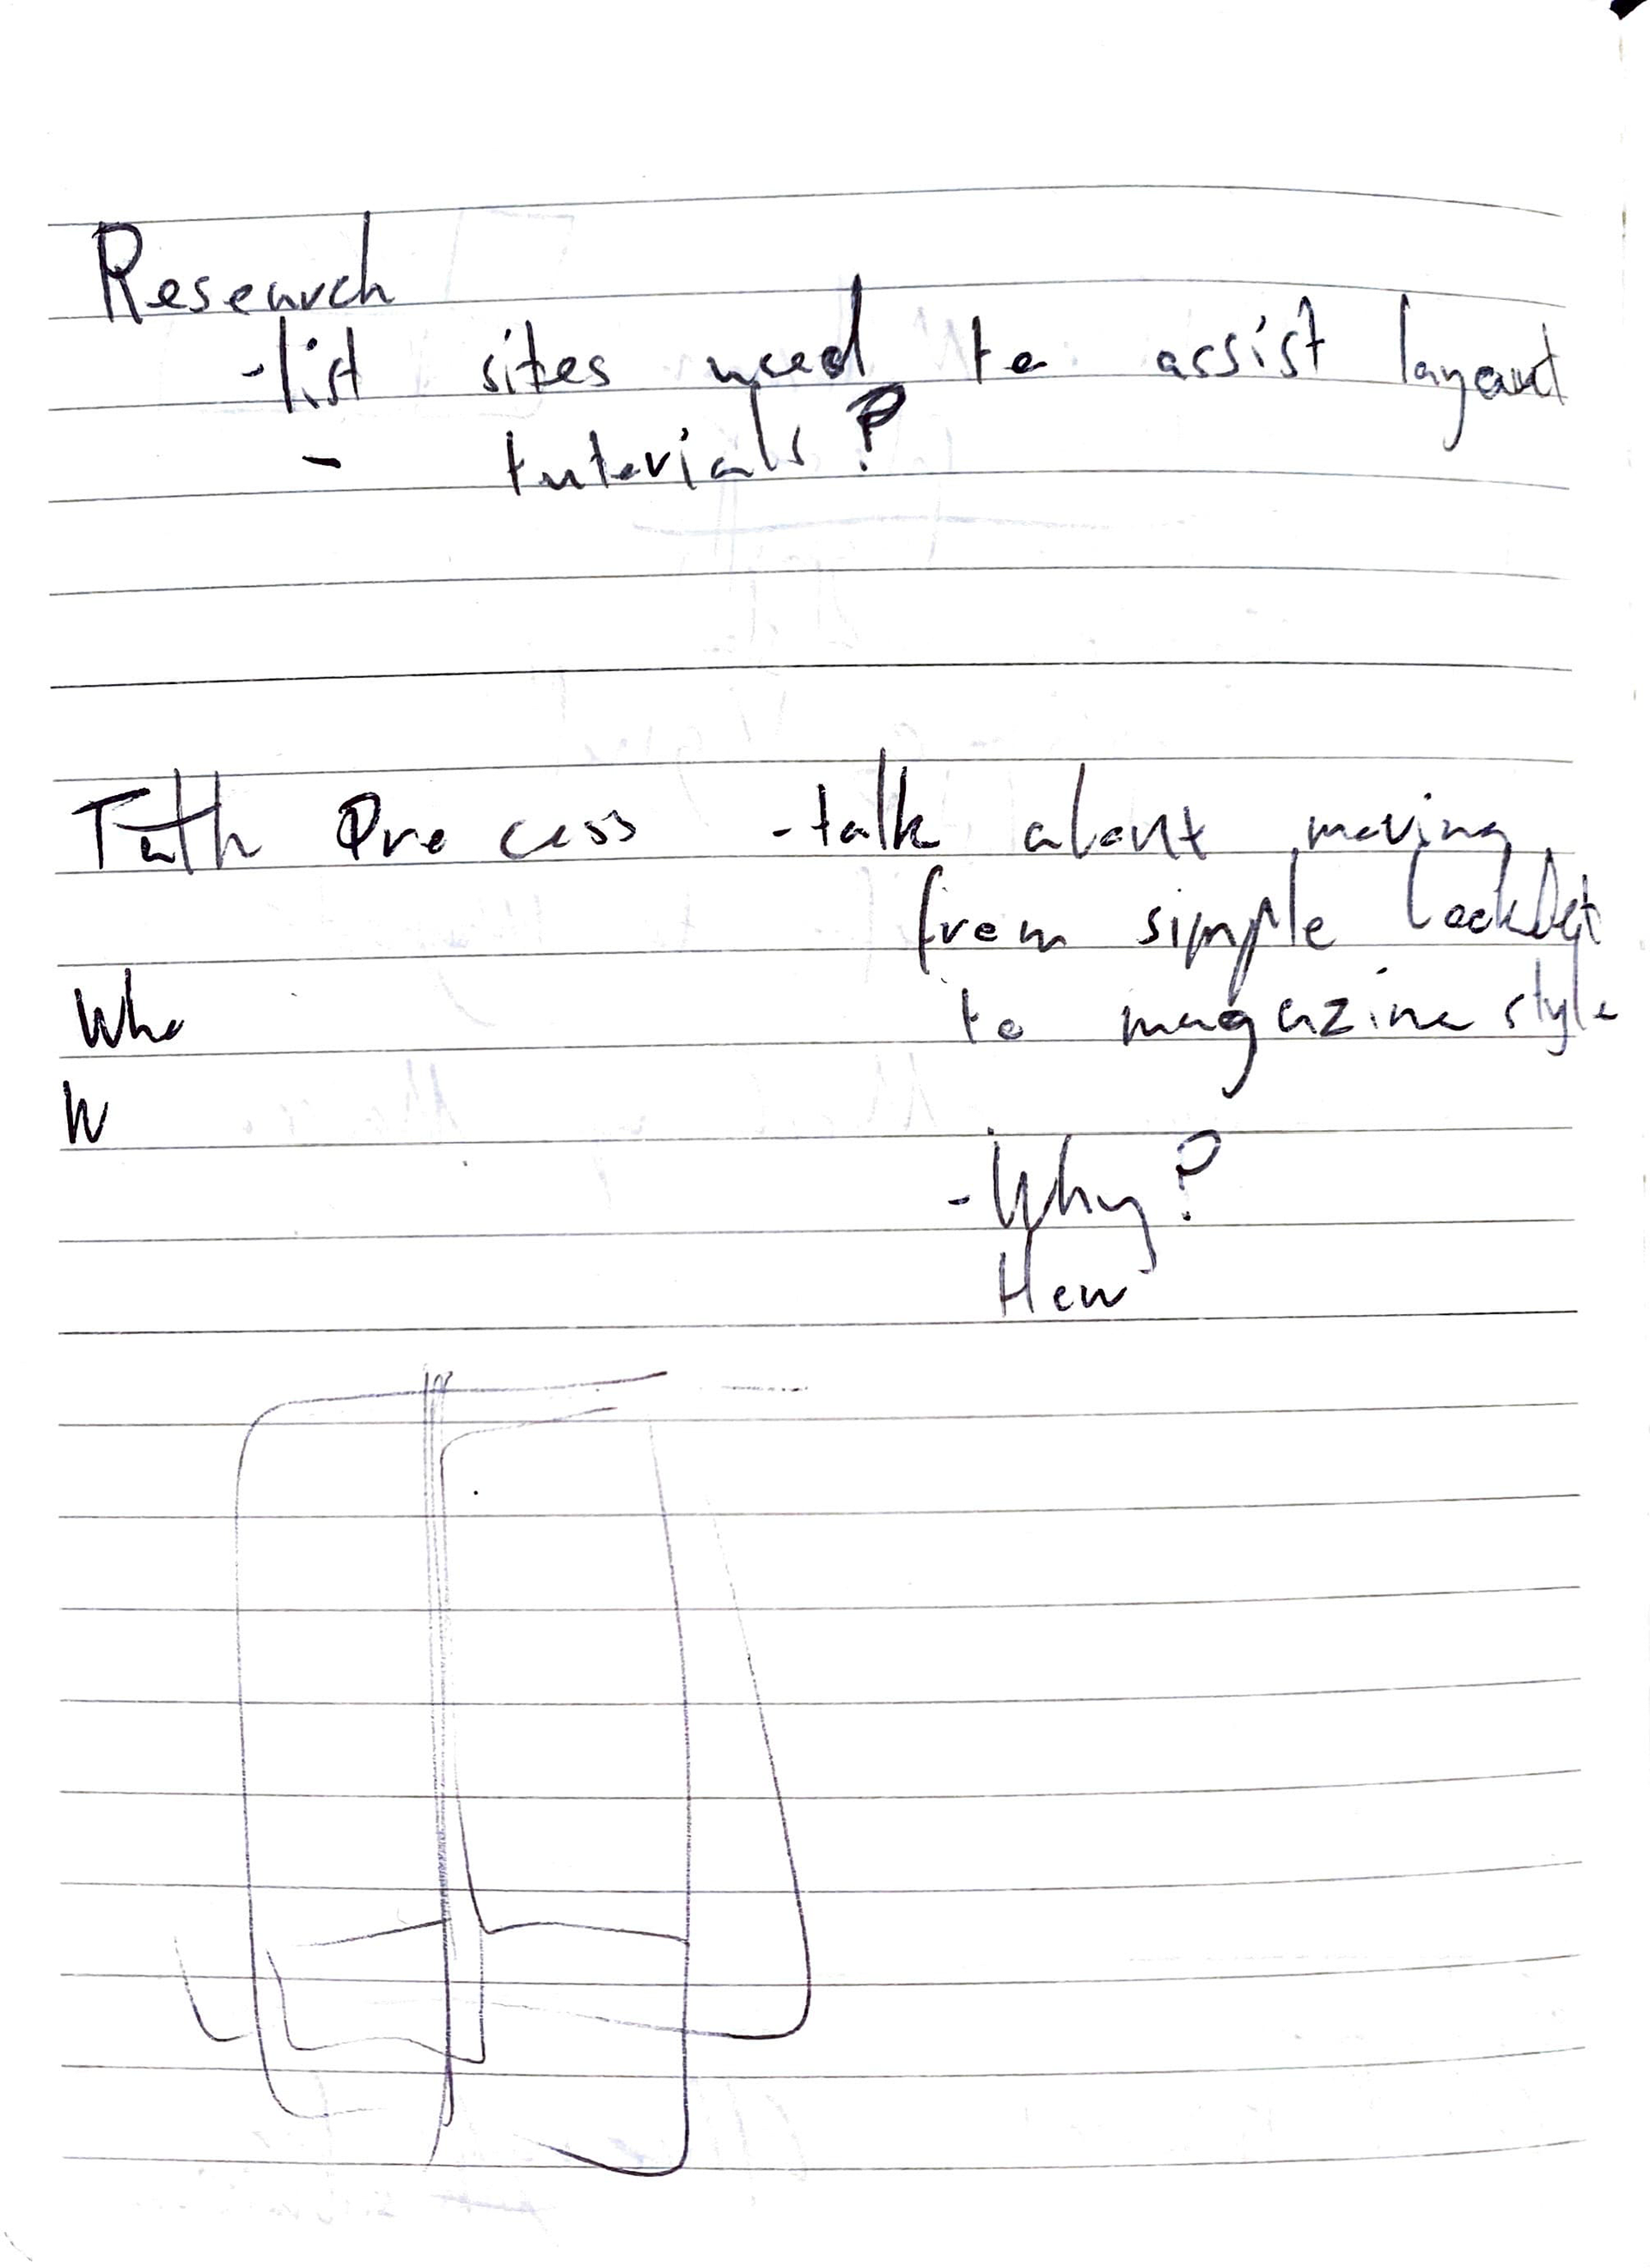 Research
-list sites used to assist layout
- tutorials?
Process -talk about moving
from simple
Who to magazine style
W
-Why?
How